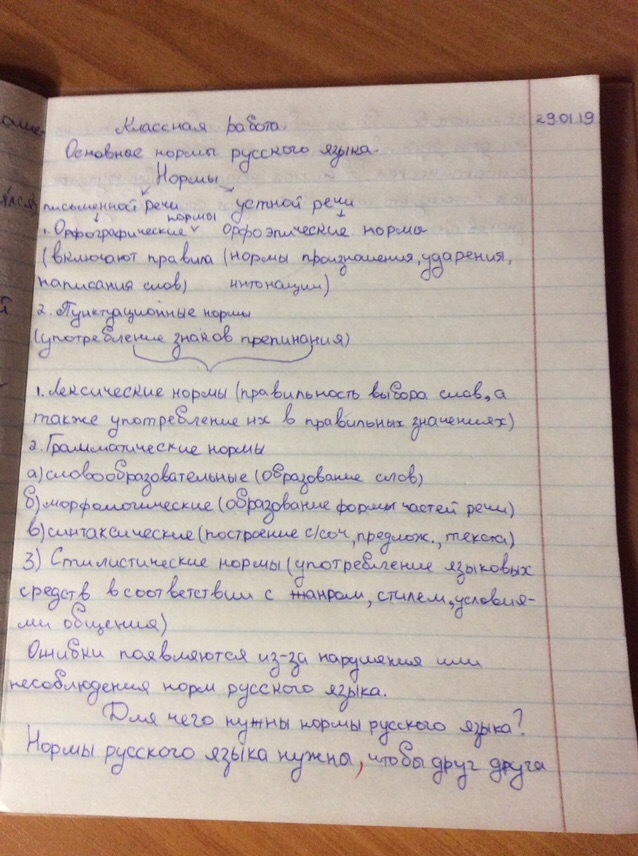 29.01.19
Классная работа.
Основные нормы русского языка.
Нормы
письменной речи устной речи
1. Орфографические нормы Орфоэпические нормы
(включают правила (нормы произношения, ударения,
написания слов) интонации)
2. Пунктуационные нормы
(употребление знаков препинания)
1. Лексические нормы (правильность выбора слов, а
также употребление их в правильных значениях)
2. Грамматические нормы
а) словообразовательные (образование слов)
б) морфологические (образование формы частей речи)
в) синтаксические (построение с/соч, предлож., текста)
3) Стилистические нормы (употребление языковых
средств в соответствии с жанром, стилем, условия-
ми общения)
Ошибки появляются из-за нарушения или
несоблюдения норм русского языка.
Для чего нужны нормы русского языка?
Нормы русского языка нужны, чтобы друг друга